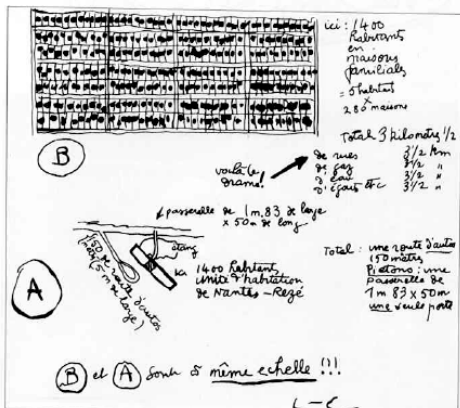 ici : 1400
habitants
en
maisons
familiales
= 5 habitant
×
280 maisons
Total 3 kilomètres 1/2
B
voilà le
drame !
de rues 3 1/2 km
de gaz 3 1/2 "
d'eau 3 1/2 "
d'égouts etc 3 1/2 "
passerelle de 1m,83 de large
× 50m de long
150 m de route d'autos
( 5 m de large)
étang
A
ici 1400 habitants
unité d'habitation
de Nantes-Rezé
Total : une route d'autos
150 mètres
Piétons : une
passerelle de
1m 83 × 50m
une seule porte
B et A sont à même echelle !!!
L-C